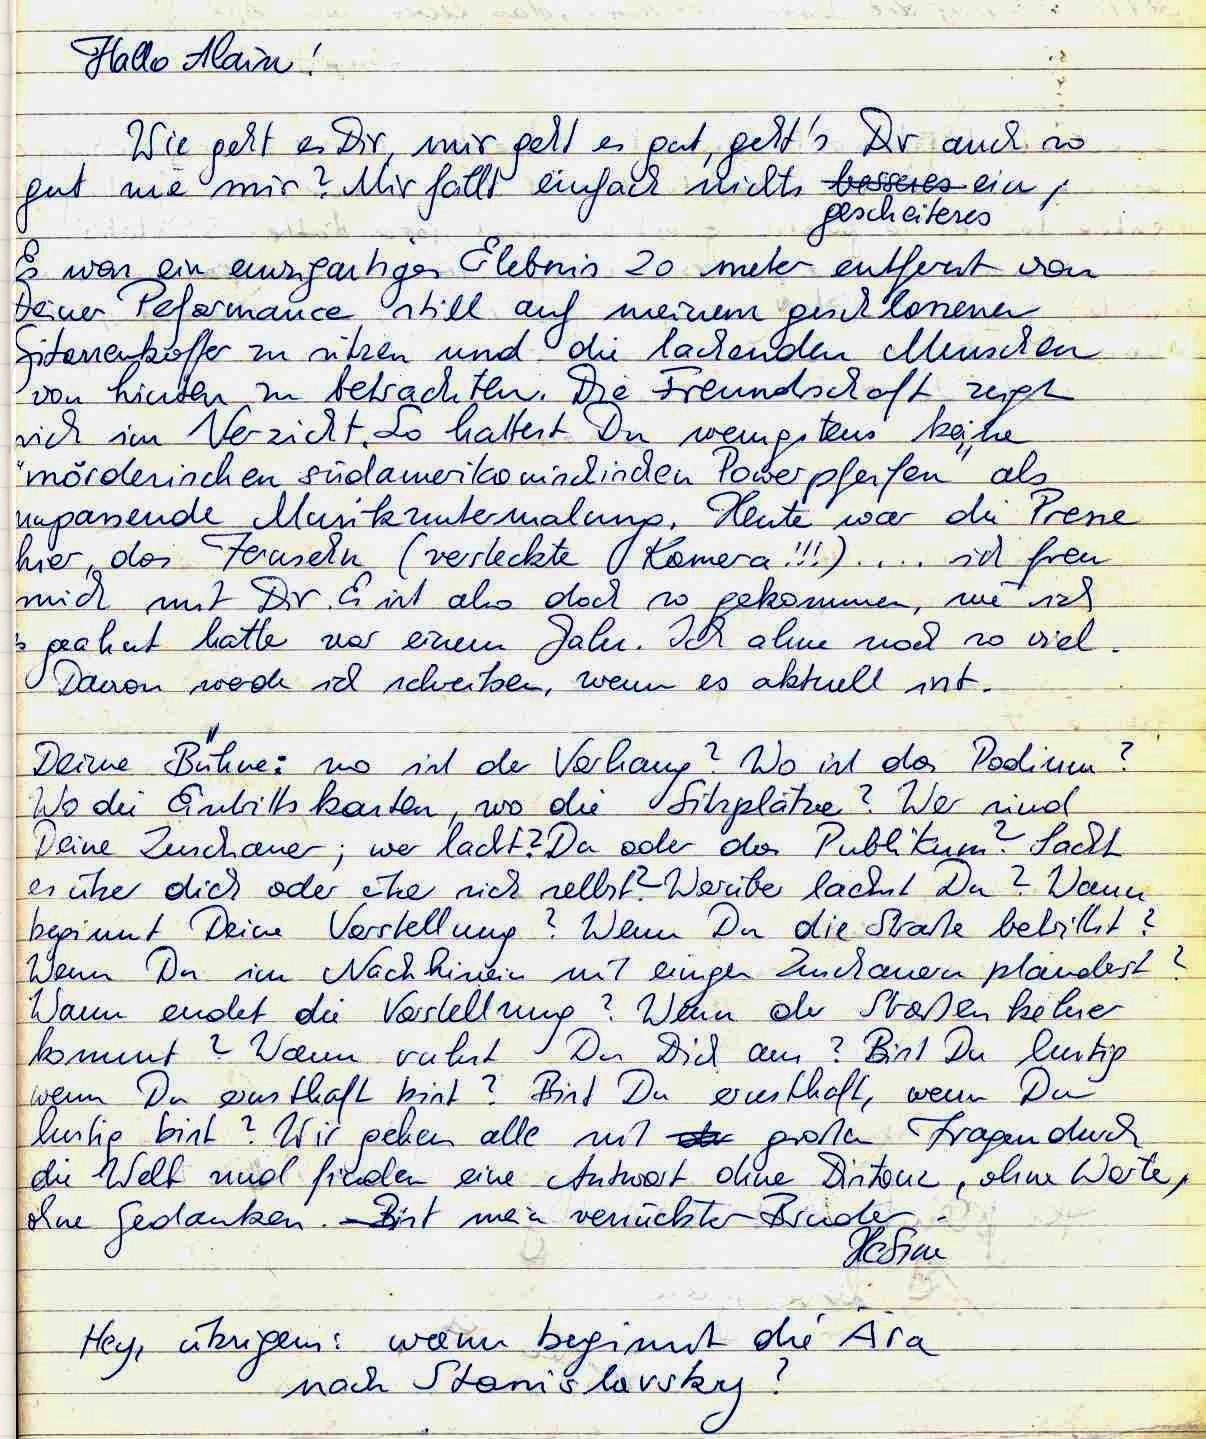 Hallo Alain!
Wie geht es Dir, mir geht es gut, geht's Dir auch so
gut wie mir? Mir fällt einfach nichts besseres ein,
gescheiteres
Es war ein einzigartiges Elebnis 20 meter entfernt von
Deiner Peformance still auf meinem geschlossenen
Gitarrenkoffer zu sitzen und die lachenden Menschen
von hinten zu betrachten. Die Freundschaft zeigt
sich im Verzicht. So hattest Du wenigstens keine
"mörderischen südamerikanischischen Powerpfeifen" als
unpassende Musikuntermalung. Heute war die Presse
hier, das Fernsehn (versteckte Kamera!!!).... ich freu
mich mit Dir. Es ist also doch so gekommen, wie ich
's geahnt hatte vor einem Jahr. Ich ahne noch so viel.
Davon werde ich schreiben, wenn es aktuell ist.
Deine Bühne: wo ist der Vorhang? Wo ist das Podium?
Wo die Eintrittskarten, wo die Sitzplätze? Wer sind
Deine Zuschauer; wer lacht? Du oder das Publikum? Lacht
es über dich oder über sich selbst? Worüber lachst Du? Wann
beginnt Deine Vorstellung? Wenn Du die Straße betrittst?
Wenn Du im Nachhinein mit einigen Zuschauern plauderst?
Wann endet die Vorstellung? Wenn der Straßenkehrer
kommt? Wann ruhst Du Dich aus? Bist Du lustig
wenn Du ernsthaft bist? Bist Du ernsthaft, wenn Du
lustig bist? Wir gehen alle mit großen Fragen durch
die Welt und finden eine Antwort ohne Distanz, ohne Worte,
ohne Gedanken. Bist mein verrückter Bruder.
Hey, übrigens: wann beginnt die Ära
nach Stanislavsky?